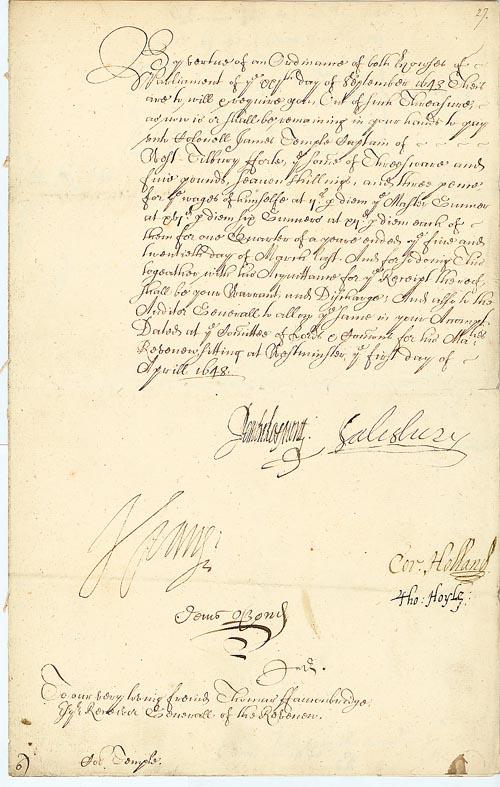 27.
By vertue of an Ordinance of both Howses of
Parliament of yᵉ xxjᵗʰ day of September 1643 Theis
are to will & require you Out of such Threasure
as now is or shall be remaining in your hands to pay
unto Colonell James Temple Captain of
West Tilbury forte, yᵉ some of Threescore and
five pounds, seaven shillings, and three pence
for yᵉ wages of himselfe at p diem yᵉ Master Gunner
at p diem six Gunners at p diem each of
them for one Quarter of a yeare ended yᵉ five and
twentieth day of March last. And for soe doing This
togeather with his Acquittance for yᵉ Receipt thereof
shall be your Warrant, and Discharge, And also to the
Auditor Generall to allow yᵉ same in your Accompts
Dated at yᵉ Comittee of Lords & Comons for his Maᵗⁱᵉˢ
Revenew sitting at Westminster, yᵉ first day of
Aprill 1648.
Salisbury
H Vane
Cor. Holland
Tho: Hoyle
Denis Bond
To our very loving freind Thomas Fauconbridge
Esqʳ Receiver Generall of the Revenew.
6)
Col Temple.